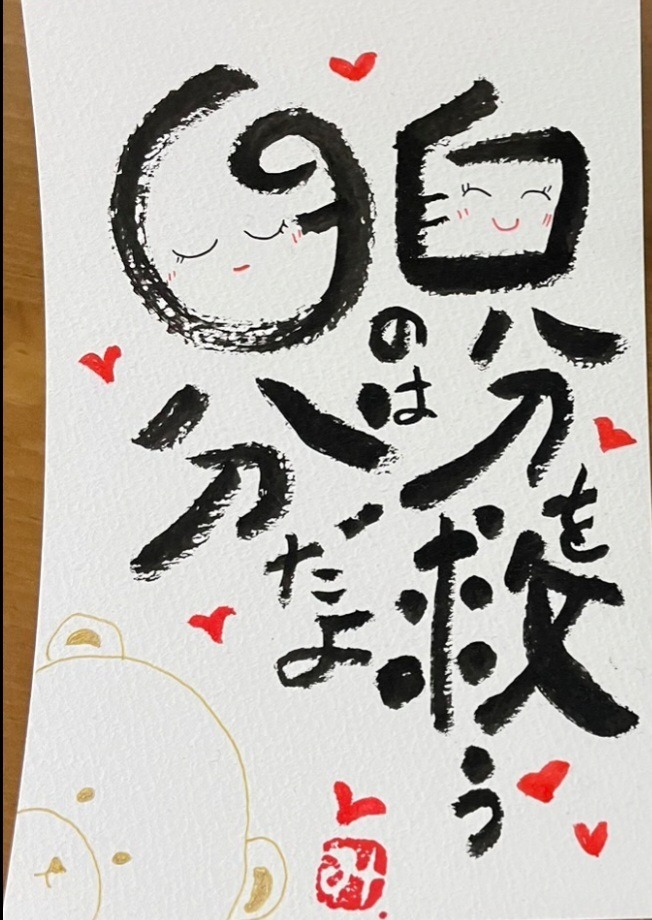 自分を救う
のは
自分だよ
み